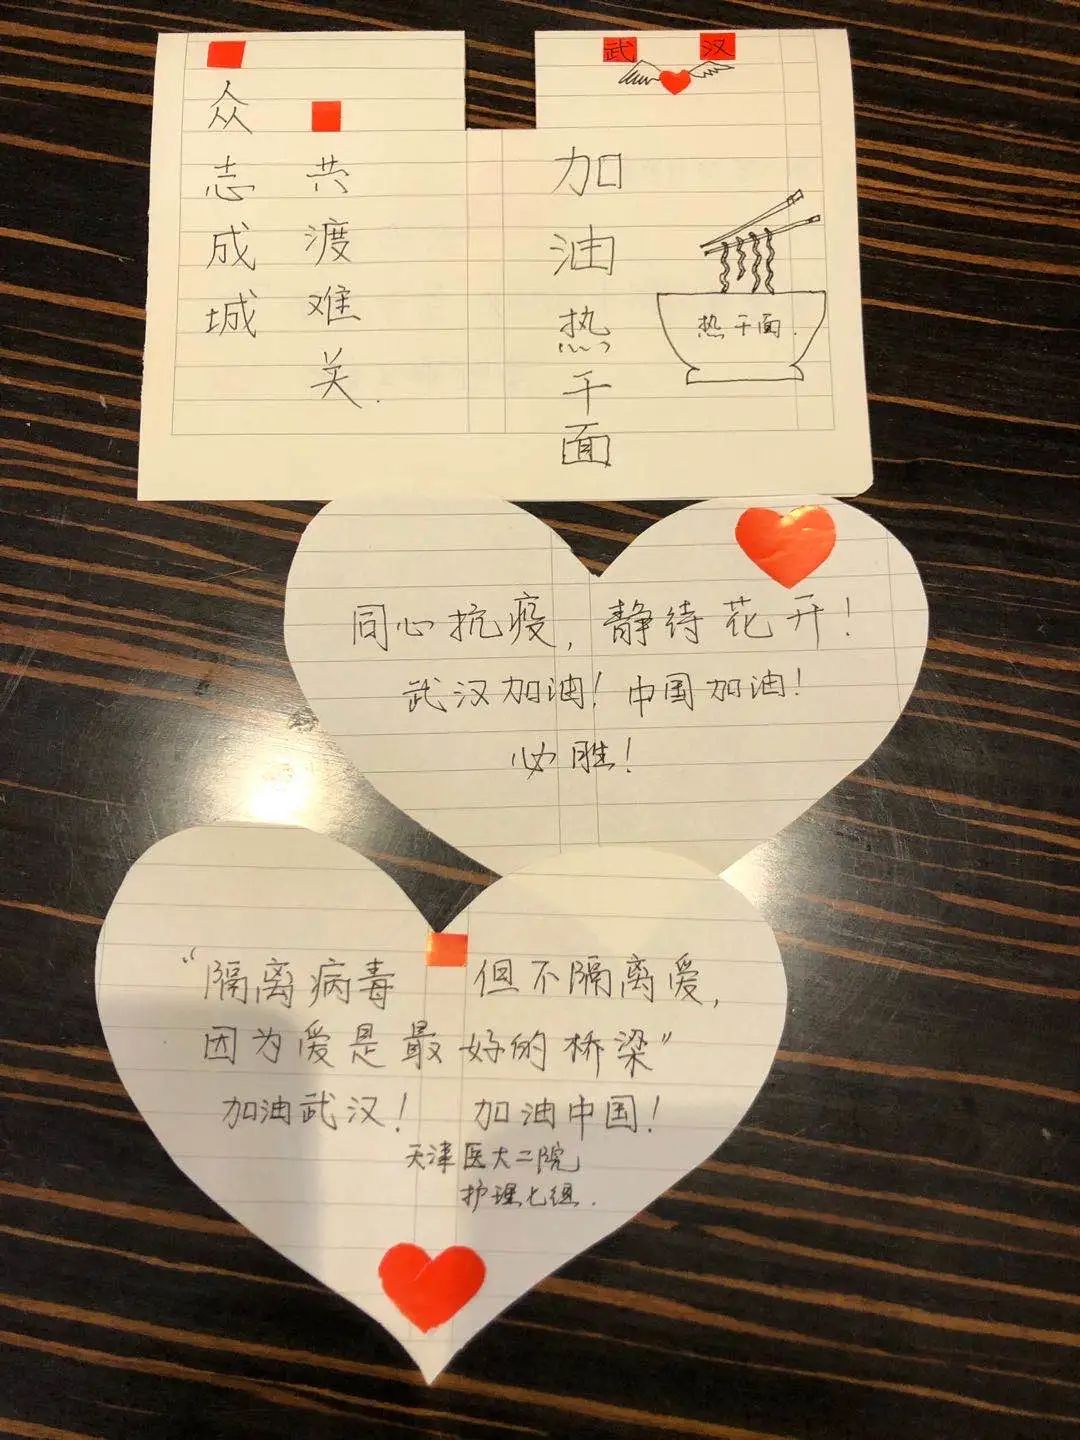 众志成城
共渡难关.
武汉
加油热干面
热干面.
同心抗疫，静待花开！
武汉加油！中国加油！
必胜！
“隔离病毒 但不隔离爱，
因为爱是最好的桥梁”
加油武汉！ 加油中国！
天津医大二院
护理七组.